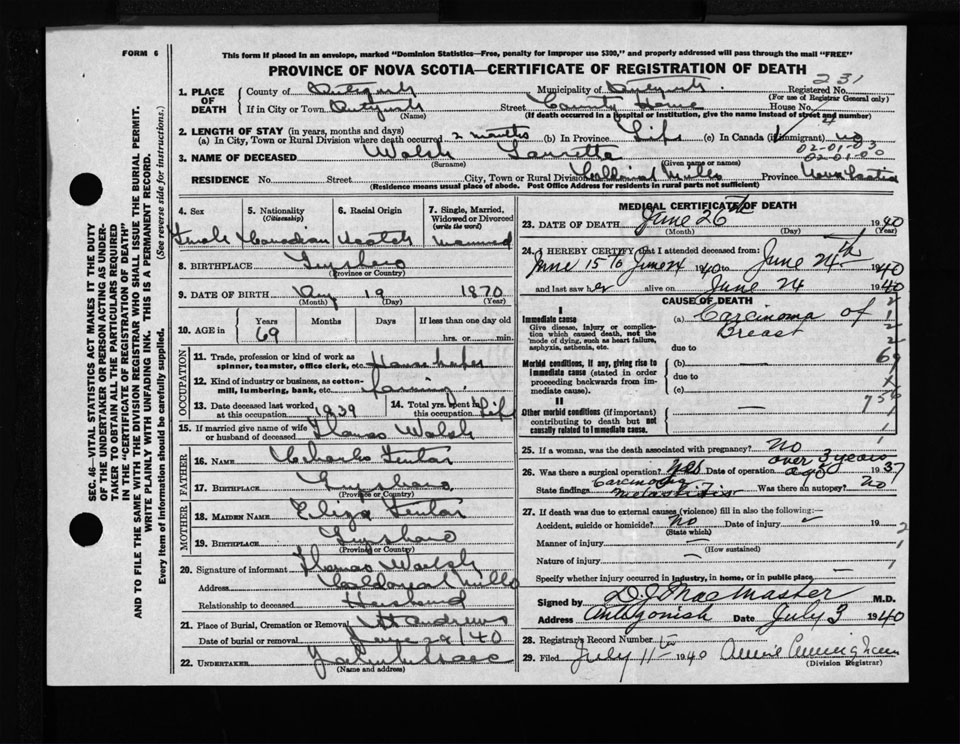 FORM 6
This form if placed in an envelope, marked "Dominion Statistics—Free, penalty for improper use $300," and properly addressed will pass through the mail "FREE"
PROVINCE OF NOVA SCOTIA—CERTIFICATE OF REGISTRATION OF DEATH
231
1. PLACE OF DEATH
County of Antigonish Municipality of Antigonish Registered No.
(For use of Registrar General only)
If in City or Town Antigonish Street County Home House No.
(Name) (If death occurred in a hospital or institution, give the name instead of street and number)
2. LENGTH OF STAY (in years, months and days)
(a) In City, Town or Rural Division where death occurred 2 months (b) In Province Life (c) In Canada (if immigrant) no
02-01-03
02-01-00
3. NAME OF DECEASED Walsh
(Surname) (Given name or names)
RESIDENCE No. Street City, Town or Rural Division Mills Province Nova Scotia
(Residence means usual place of abode. Post Office Address for residents in rural parts not sufficient)
4. Sex Female
5. Nationality (Citizenship) Canadian
6. Racial Origin Scotch
7. Single, Married, Widowed or Divorced (write the word) Married
8. BIRTHPLACE Guysboro
(Province or Country)
9. DATE OF BIRTH Aug 19 1870
(Month) (Day) (Year)
10. AGE in Years Months Days If less than one day old
69 hrs. or min.
OCCUPATION
11. Trade, profession or kind of work as spinner, teamster, office clerk, etc.
12. Kind of industry or business, as cotton-mill, lumbering, bank, etc. farming
13. Date deceased last worked at this occupation 1939
14. Total yrs. spent in this occupation Life
15. If married give name of wife or husband of deceased Thomas Walsh
FATHER
16. NAME Charles
17. BIRTHPLACE Guysboro
(Province or Country)
MOTHER
18. MAIDEN NAME Eliza
19. BIRTHPLACE Guysboro
(Province or Country)
20. Signature of informant Thomas Walsh
Address Mills
Relationship to deceased Husband
21. Place of Burial, Cremation or Removal St Andrews
Date of burial or removal June 29/40
22. UNDERTAKER
(Name and address)
MEDICAL CERTIFICATE OF DEATH
23. DATE OF DEATH June 26th 1940
(Month) (Day) (Year)
24. I HEREBY CERTIFY that I attended deceased from:
June 15 to June 24 1940 to June 24th 1940
and last saw her alive on June 24 1940
CAUSE OF DEATH
I
Immediate cause (a) Carcinoma of
Breast
Give disease, injury or complication which caused death, not the mode of dying, such as heart failure, asphyxia, asthenia, etc.
due to
Morbid conditions, if any, giving rise to immediate cause (stated in order proceeding backwards from immediate cause).
(b)
due to
(c)
II
Other morbid conditions (if important) contributing to death but not causally related to immediate cause.
25. If a woman, was the death associated with pregnancy? No
over 3 years
26. Was there a surgical operation? Yes Date of operation ago 1937
State findings Carcinoma Was there an autopsy? No
27. If death was due to external causes (violence) fill in also the following:—
Accident, suicide or homicide? No Date of injury 19
(State which)
Manner of injury
(How sustained)
Nature of injury
Specify whether injury occurred in industry, in home, or in public place
Signed by D. J. MacMaster M.D.
Address Antigonish Date July 3 1940
28. Registrar's Record Number
29. Filed July 11th 1940 Annie Cunningham
(Division Registrar)
SEC. 46—VITAL STATISTICS ACT MAKES IT THE DUTY
OF THE UNDERTAKER OR PERSON ACTING AS UNDER-
TAKER TO OBTAIN ALL THE PARTICULARS REQUIRED
IN THE "CERTIFICATE OF REGISTRATION OF DEATH"
AND TO FILE THE SAME WITH THE DIVISION REGISTRAR WHO SHALL ISSUE THE BURIAL PERMIT.
WRITE PLAINLY WITH UNFADING INK. THIS IS A PERMANENT RECORD.
Every item of information should be carefully supplied. (See reverse side for instructions.)